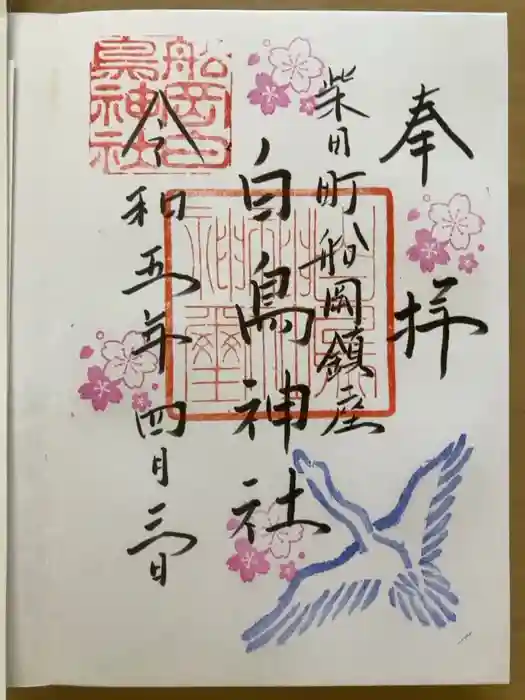 奉拝
柴田町船岡鎮座
白鳥神社
令和五年四月三日
船岡白
鳥神社